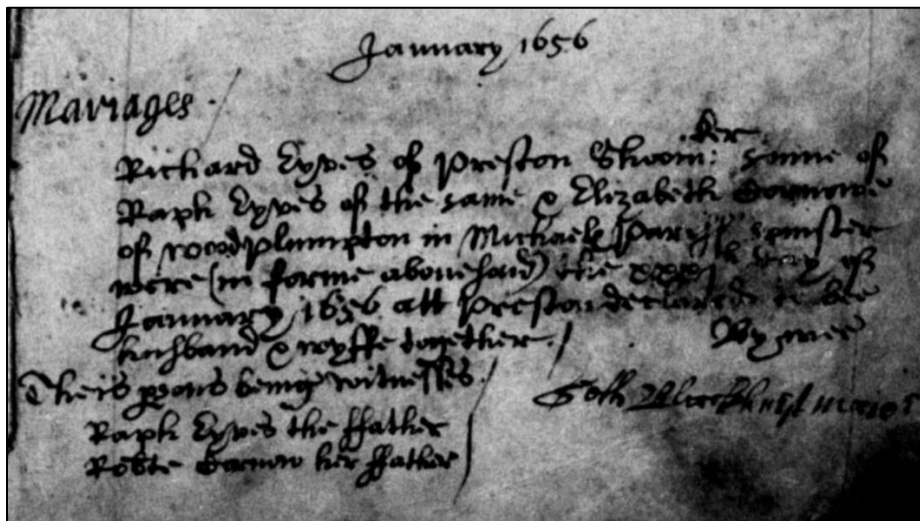 January 1656
Mariages.
Richard Eyves of Preston Shoom: ker sonne of
Raph Eyves of the same & Elizabeth
of woodplumpton in Michaels Parish spinster
were (in forme abovesaid) the xxxjth day of
January 1656 att Preston declared to bee
husband & wyffe together. By mee
Theis psons being witnesses.
Raph Eyves the ffather
Robte her ffather